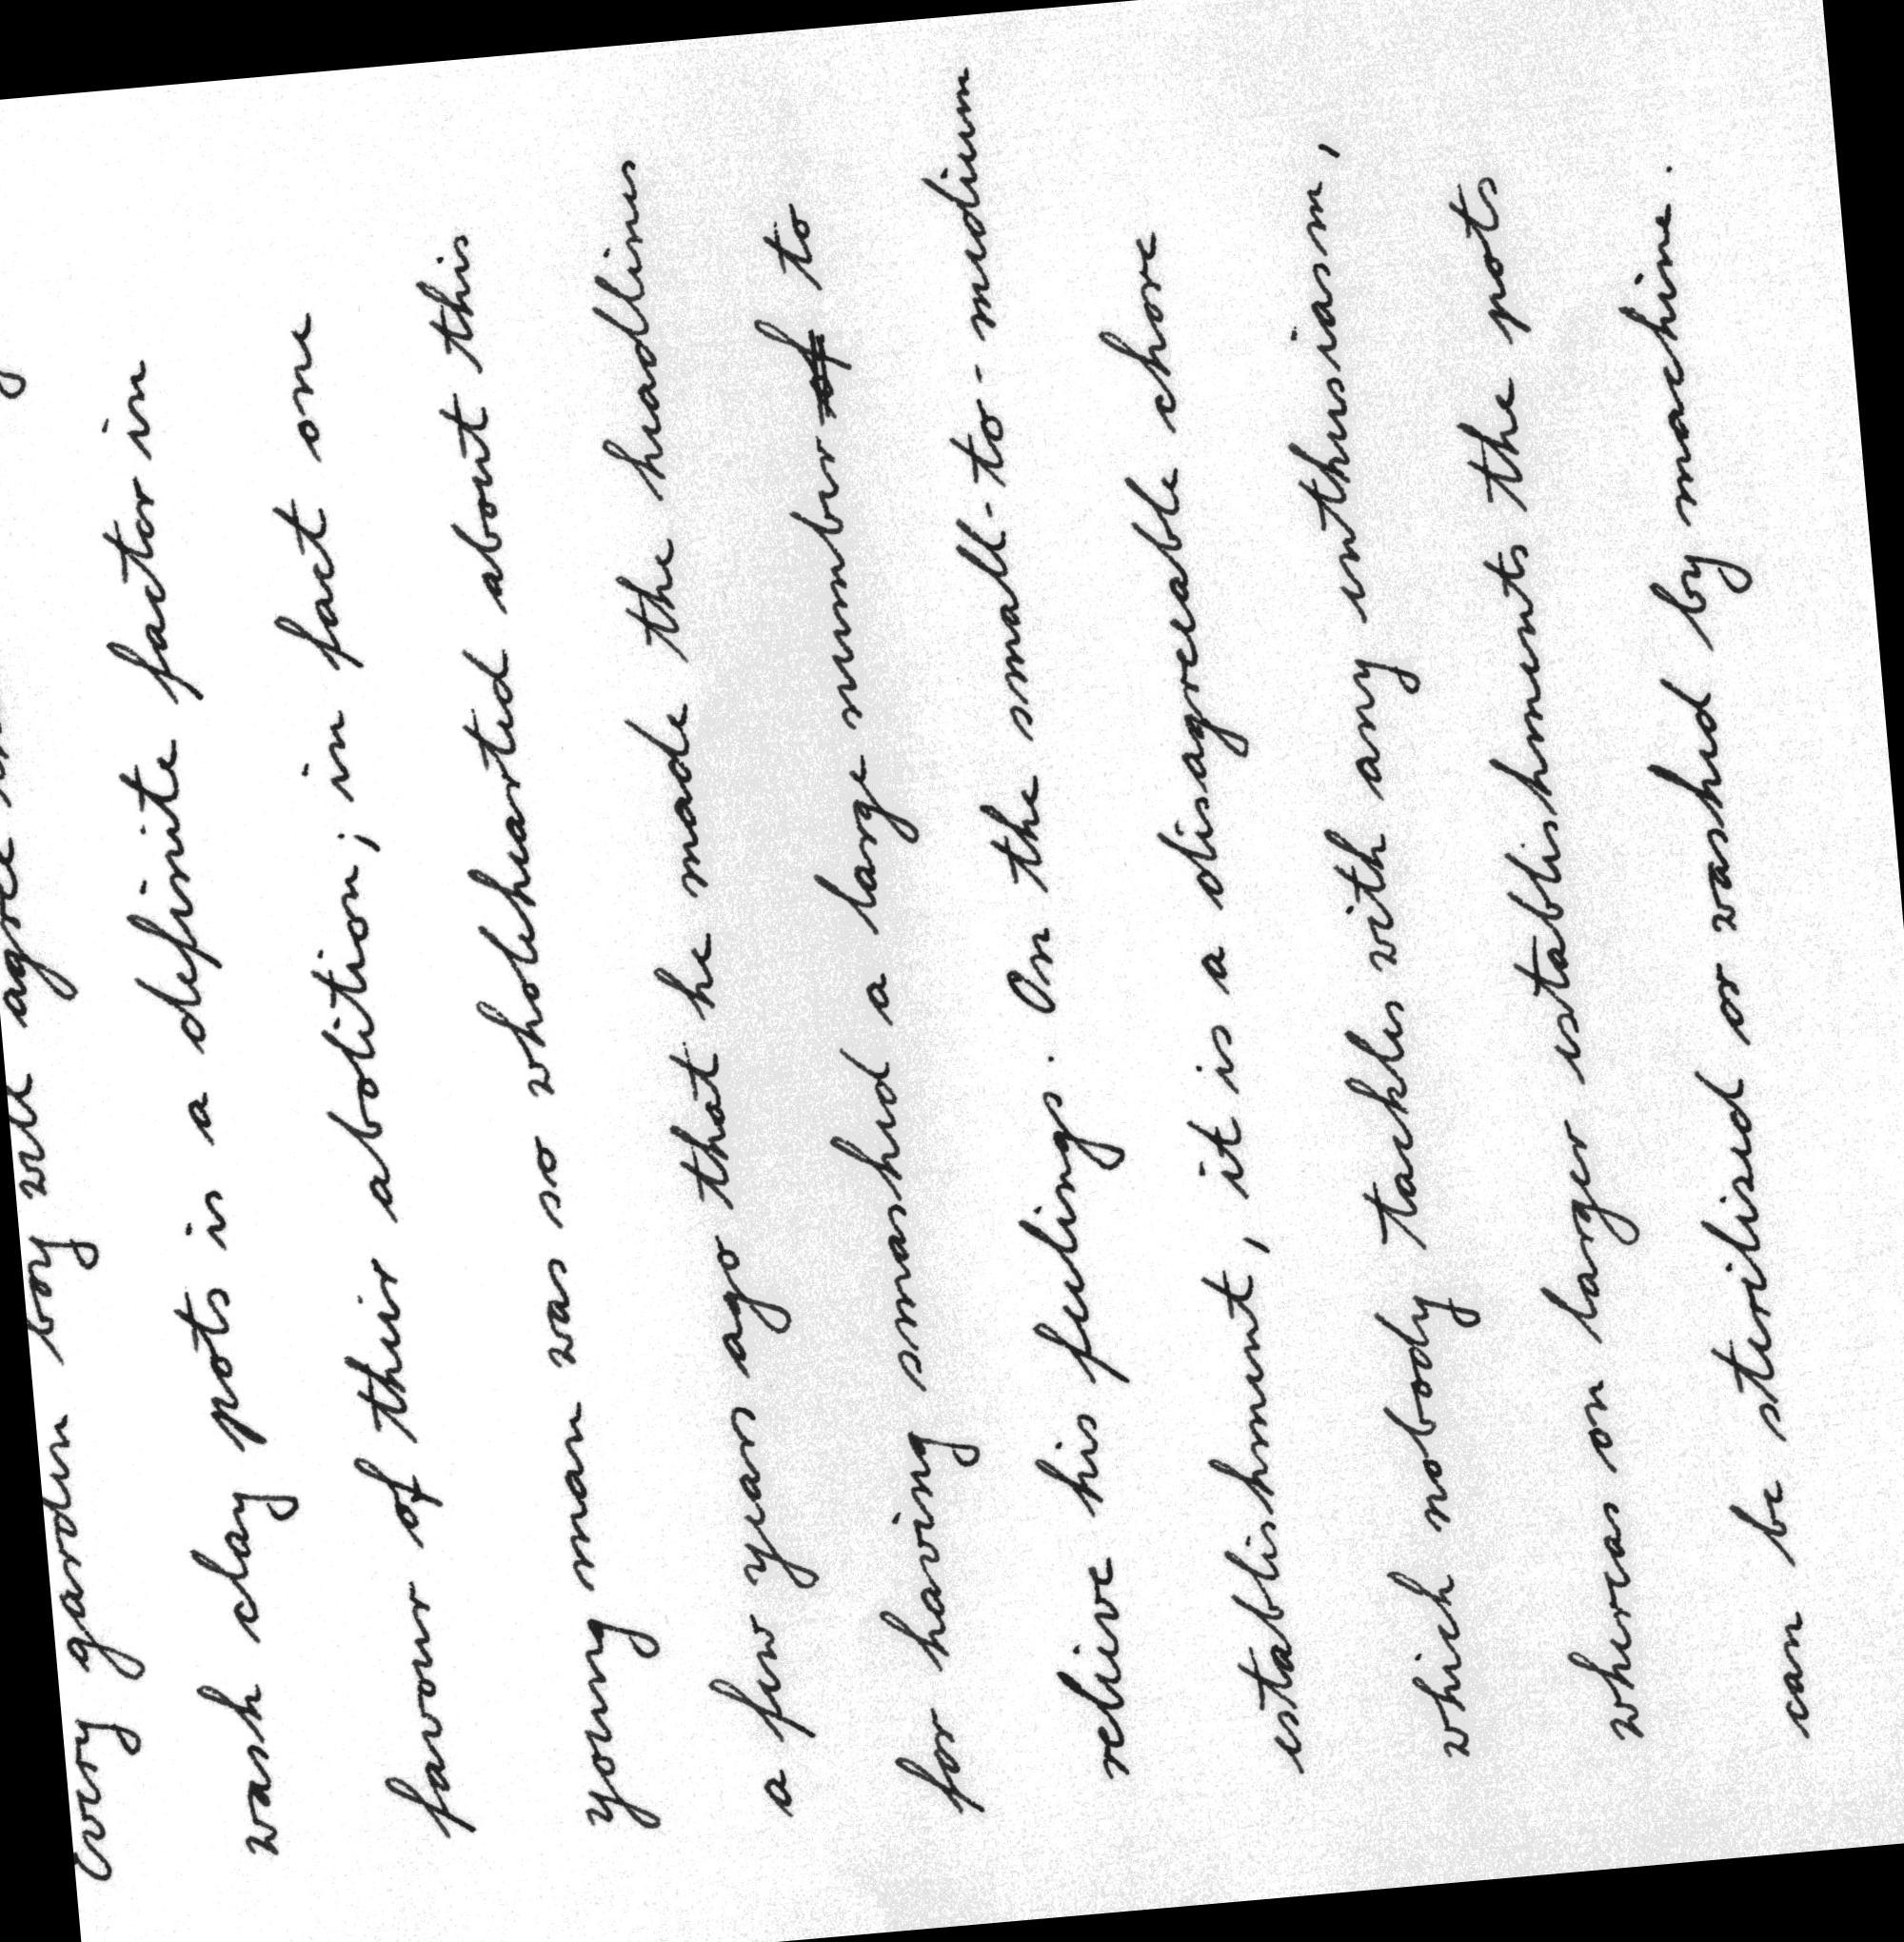 Every garden boy will agree
wash clay pots is a definite factor in
favour of their abolition; in fact one
young man was so wholehearted about this
a few years ago that he made the headlines
for having smashed a large number of to
relieve his feelings. On the small-to-medium
establishment, it is a disagreeable chore
which nobody tackles with any enthusiasm,
whereas on larger establishments the pots
can be sterilised or washed by machine.